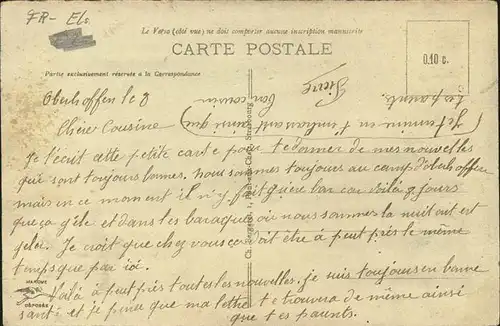 FR- Els
Le Verso (côté vue) ne doit comporter aucune inscription manuscrite
CARTE POSTALE
0.10 c.
Partie exclusivement réservée à la Correspondance
Oberhoffen le 8
Chère Cousine
Je t'écrit cette petite carte pour te donner de mes nouvelles
qui sont toujours bonnes. Nous sommes toujours au camp d'Oberhoffen
mais en ce moment il n'y fait guère bon car voila 8 jours
que ça gèle et dans les baraques où nous sommes la nuit tout est
gelé. Je crois que chez vous ça doit être à peut près le même
temps que par ici.
Voilà à peut près toutes les nouvelles. je suis toujours en bonne
santé et je pense que ma lettre te trouvera de même ainsi
que tes parents.
(Je termine en t'embrassant ainsi que
tes parents.
Ton cousin
Pierre
MARQUE
DÉPOSÉE